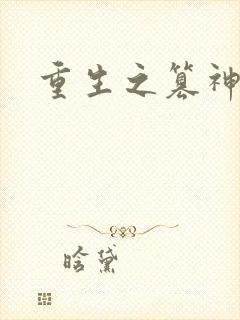 重生之篡神
晗黛